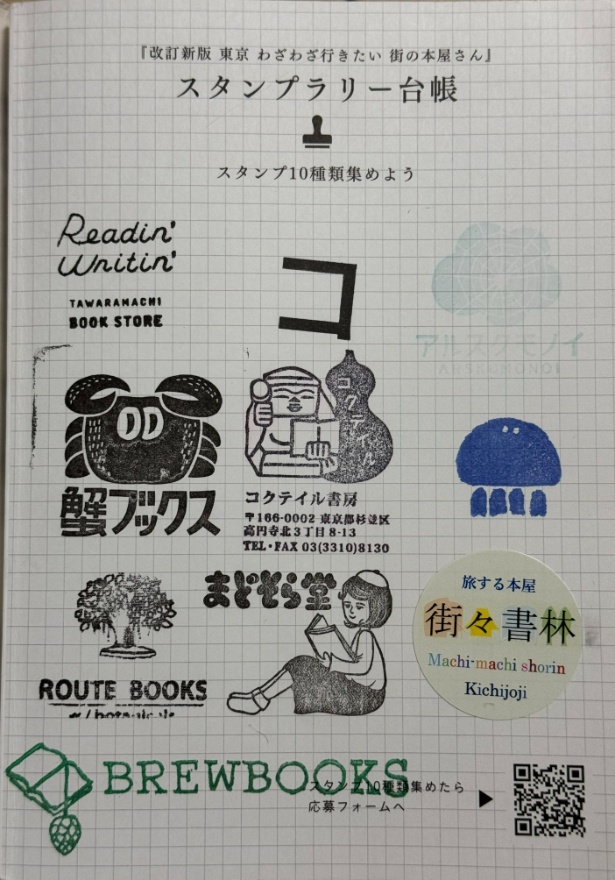 『改訂新版 東京 わざわざ行きたい 街の本屋さん』
スタンプラリー台帳
スタンプ10種類集めよう
Readin'
Writin'
TAWARAMACHI
BOOK STORE
コ
蟹ブックス
コクテイル
コクテイル書房
〒166-0002 東京都杉並区
高円寺北3丁目8-13
TEL・FAX 03(3310)8130
ROUTE BOOKS
まどそら堂
旅する本屋
街々書林
Machi-machi shorin
Kichijoji
BREWBOOKS
スタンプ10種類集めたら
応募フォームへ